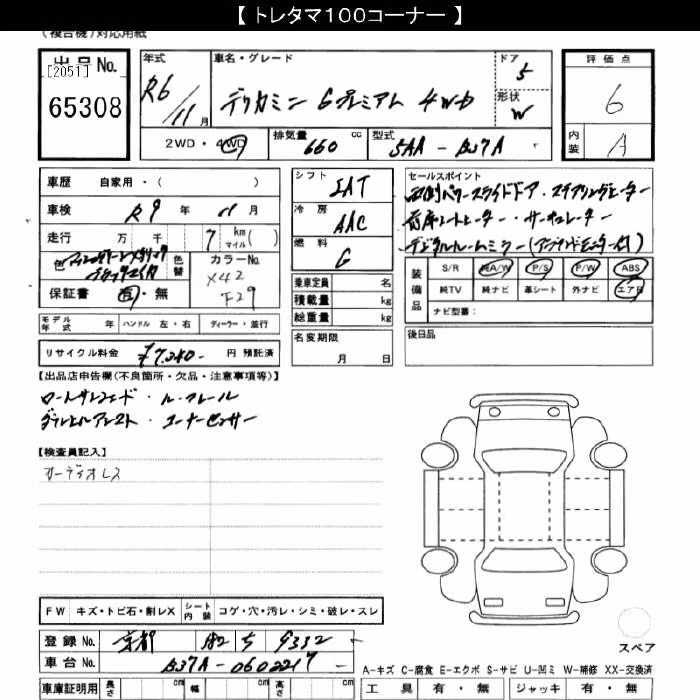 【 トレタマ100コーナー 】
(複合機)対応用紙
出品No.
[2051]
65308
年式
R6/11月
車名・グレード
デリカミニ Gプレミアム 4WD
ドア
5
形状
W
評価点
6
内装
A
2WD・4WD
排気量 660 cc
型式 5AA - B37A
車歴 自家用・( )
車検 R9年 11月
走行 万 千 7 km マイル( )
色
色替
カラーNo.
X42
F29
保証書 有・無
シフト IAT
冷房 AAC
燃料 G
乗車定員 名
積載量 kg
総重量 kg
名変期限
月 日
セールスポイント
両側パワースライドドア・ステアリングヒーター
前席シートヒーター・サーキュレーター
デジタルルームミラー
装備品
S/R 純A/W P/S P/W ABS
純TV 純ナビ 革シート 外ナビ エアB
ナビ型番:
後日品
モデル年式 年 ハンドル 左・右 ディーラー・並行
リサイクル料金 ¥7,280- 円 預託済
【出品店申告欄(不良箇所・欠品・注意事項等)】
ルーフレール
コーナーセンサー
【検査員記入】
オーディオレス
FW キズ・トビ石・割レX シート内装 コゲ・穴・汚レ・シミ・破レ・スレ
登録No. 京都 582 ち 9332
車台No. B37A-0602217
車庫証明用 長さ cm 幅 cm 高さ cm
スペア
A-キズ C-腐食 E-エクボ S-サビ U-凹ミ W-補修 XX-交換済
工具 有・無 ジャッキ 有・無